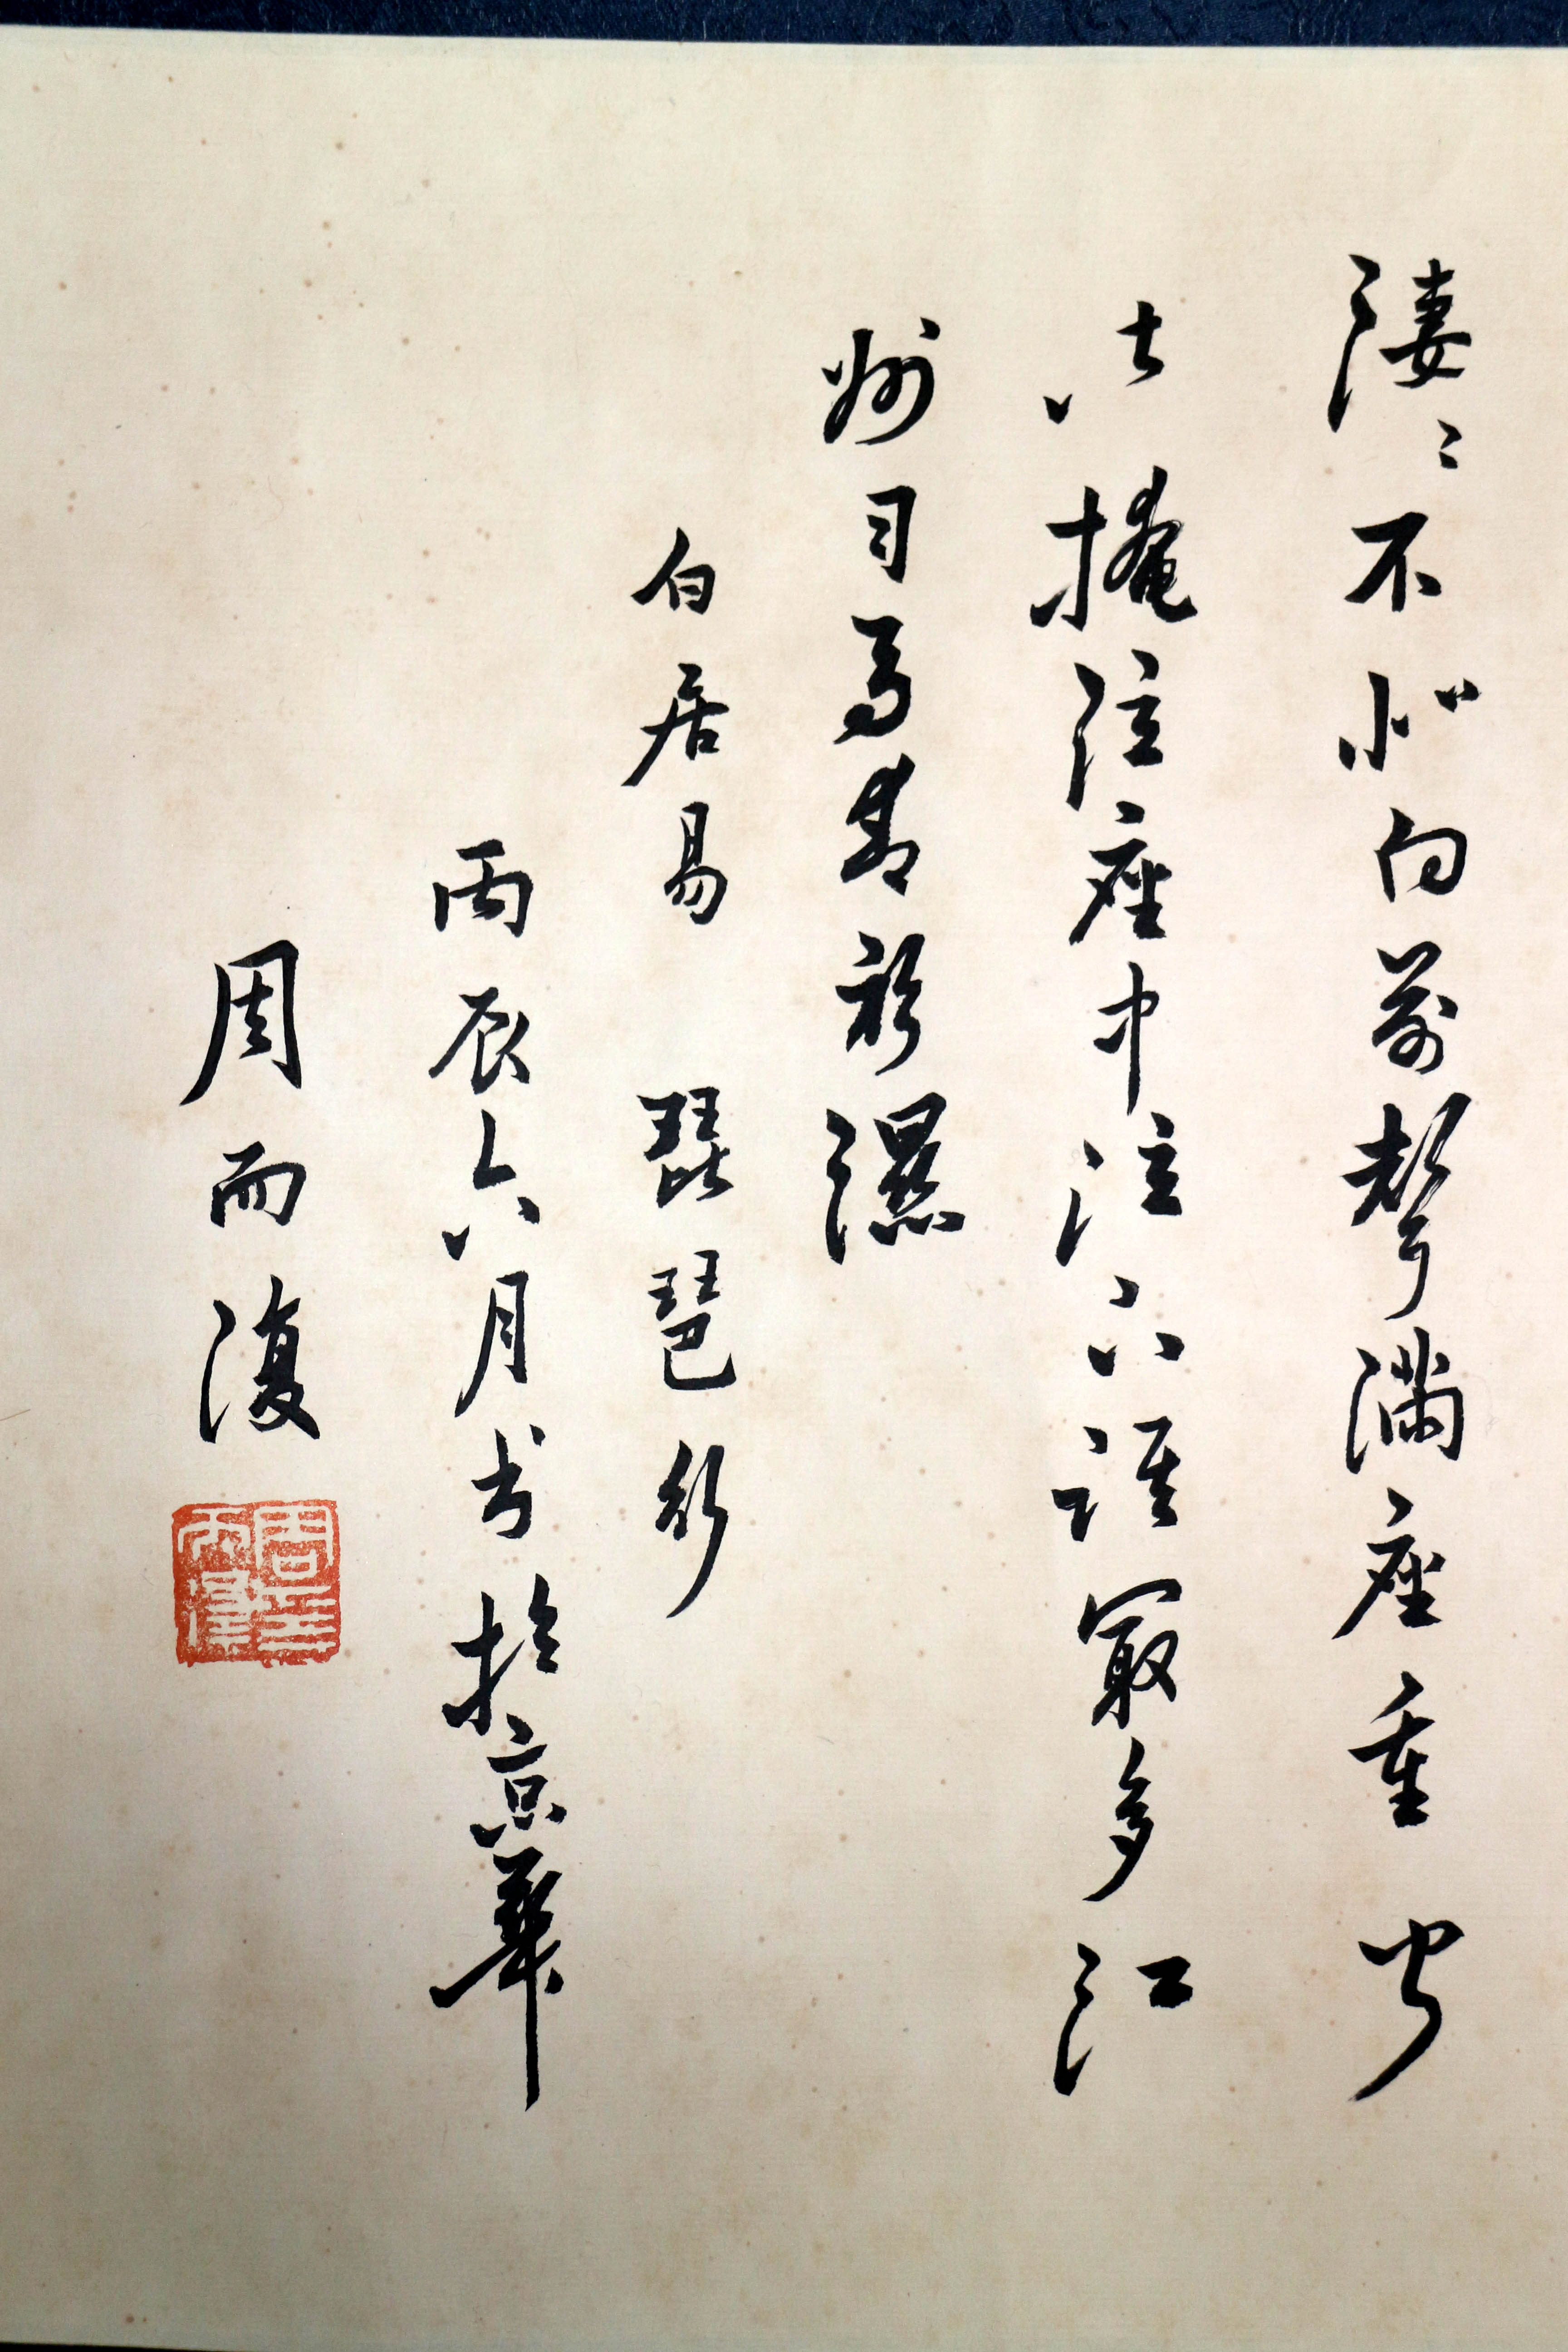 淒〻不似向前聲滿座重聞
皆掩泣座中泣下誰冣多江
州司馬青衫濕
白居易 琵琶行
丙辰六月书於京華
周而復